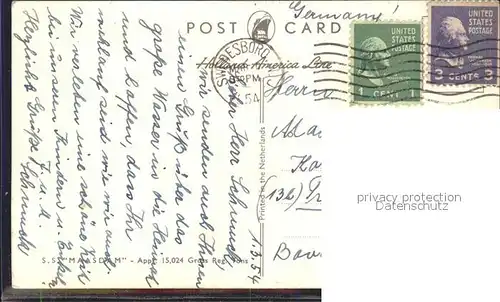 Germany!
POST CARD
Holland-America Line
SWEDESBORO
PM
54
UNITED STATES POSTAGE
1 CENT 1
UNITED STATES POSTAGE
3 CENTS 3
Herrn
(13b)
1.3.54
Printed in the Netherlands
Lieber Herr Schmuck
wir senden auch Ihnen
einen Gruß über das
große Wasser in die Heimat
und hoffen, dass Ihr
wohlauf sind wie wir auch.
Wir verleben eine schöne Zeit
bei unseren Kindern u. Enkeln
Herzliche Grüße F. u. A.
Schmuck
S.S. "MAASDAM" - Appr. 15,024 Gross Reg. Tons
privacy protection
Datenschutz